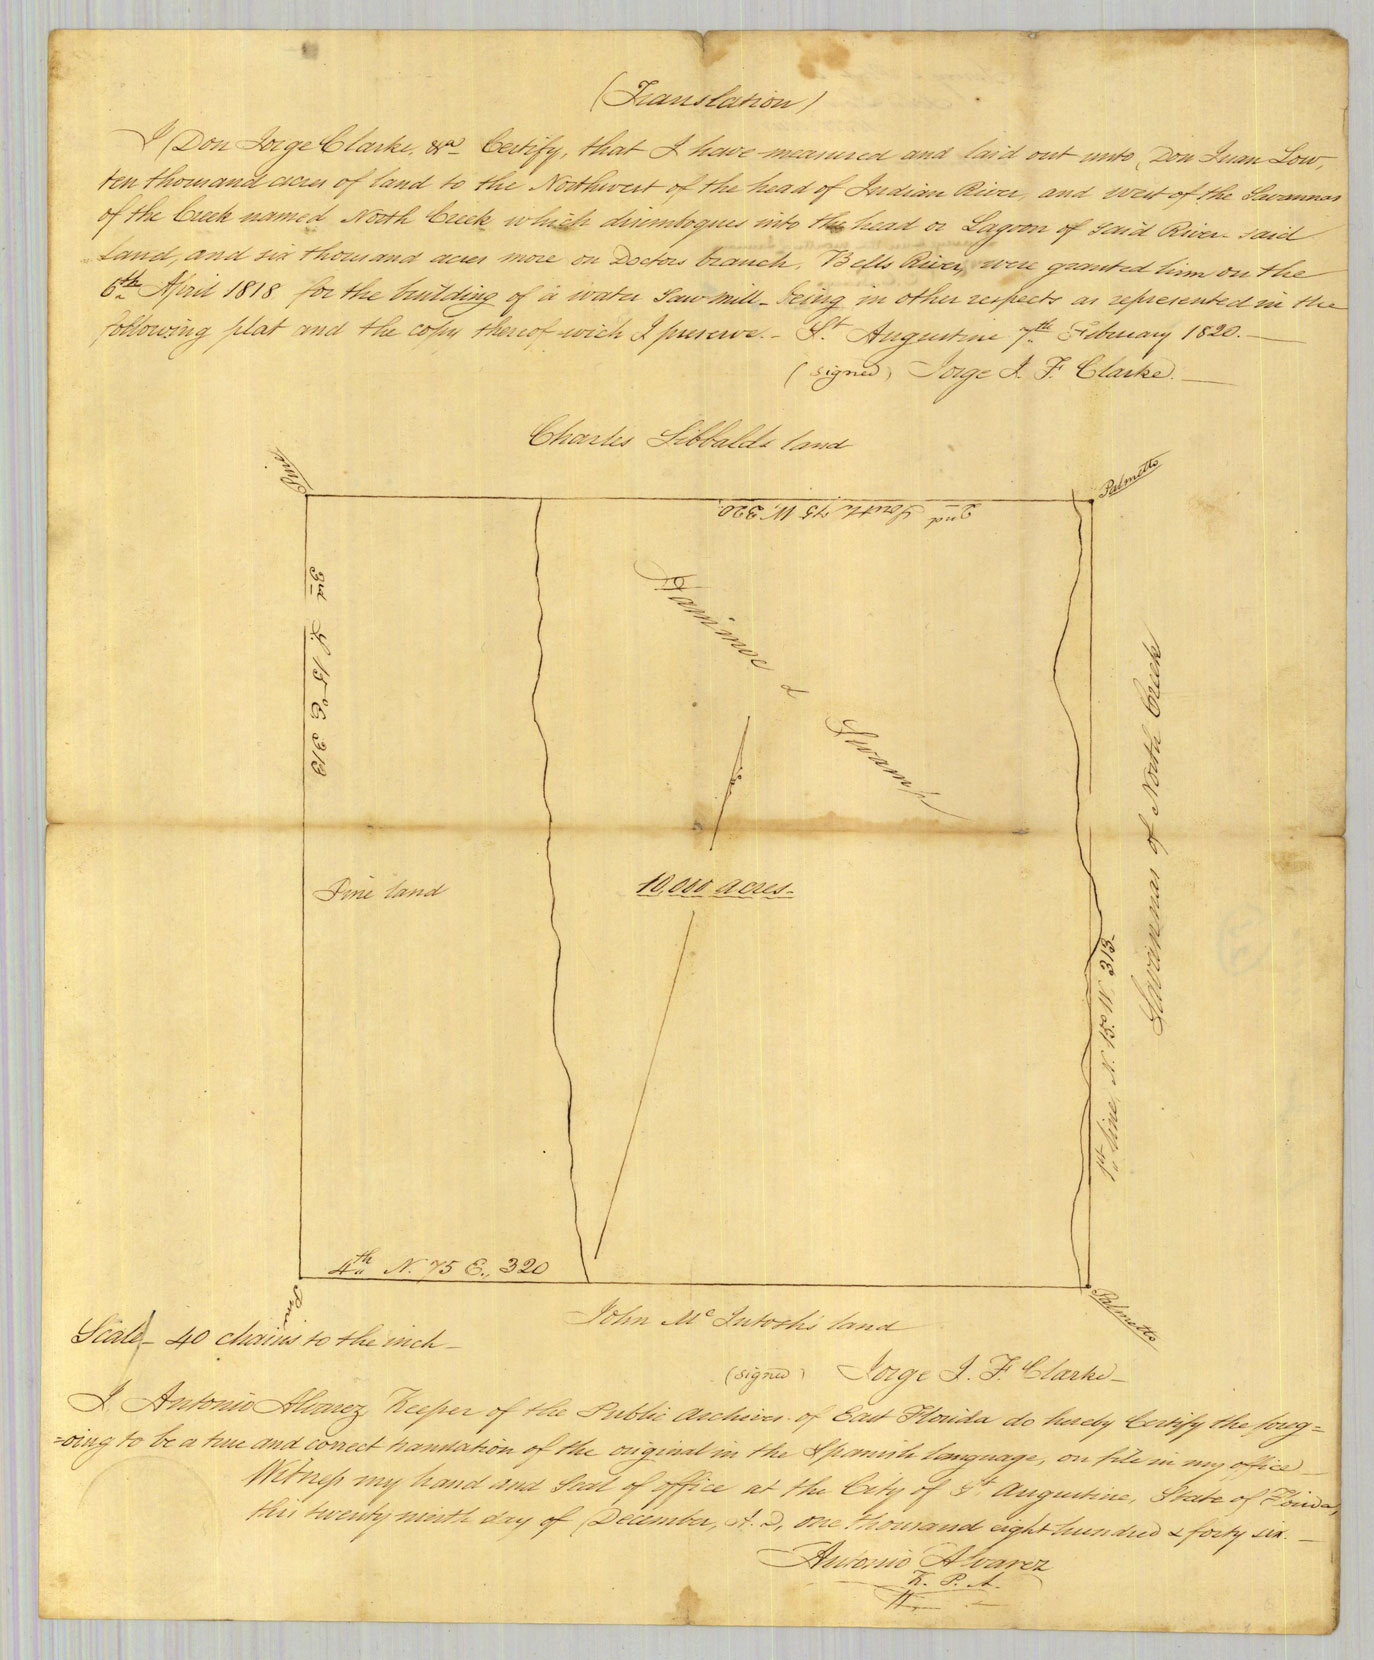 (Translation)
I Don Jorge Clarke, &a Certify, that I have measured and laid out unto Don Juan Low,
ten thousand acres of land to the Northwest of the head of Indian River, and west of the Savannas
of the Creek named North Creek which disimbogues into the head or Lagoon of said River - said
Land, and six thousand acres more on Doctors branch, Bells River, were granted him on the
6th April 1818 for the building of a water Saw mill - being in other respects as represented in the
following plat and the copy thereof wich I preserve. - St. Augustine 7th February 1820. -
(signed) Jorge J. F. Clarke. -
Charles Sibbalds land
Pine
Palmetto
2nd South 75 W. 320
3rd S. 15° E 313
Hammoc & Swamp
Savannas of North Creek
Pine land
10,000 acres -
1st line, N. 15° W. 313 -
4th N. 75 E., 320
Pine
Palmetto
John McIntosh's land
Scale - 40 chains to the inch -
(signed) Jorge J. F. Clarke -
I Antonio Alvarez Keeper of the Public Archives of East Florida do hereby Certify the foreg=
=oing to be a true and correct translation of the original in the Spanish language, on file in my office -
Witness my hand and Seal of office at the City of St Augustine, State of Florida,
this twenty ninth day of December, A. D, one thousand eight hundred & forty six. -
Antonio Alvarez
K. P. A.